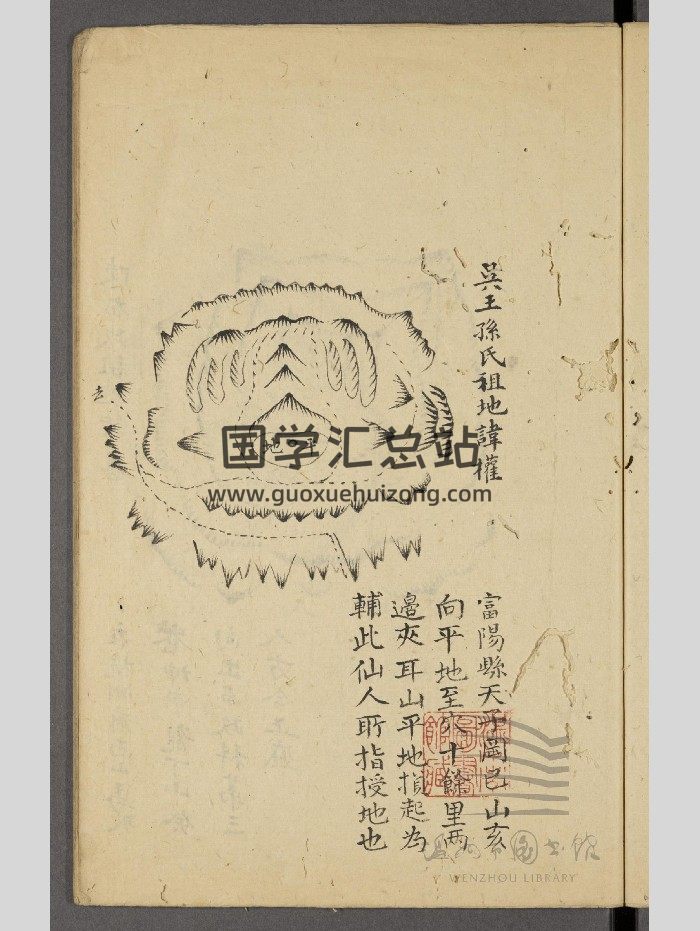 吳王孫氏祖地諱權
富陽縣天子岡巳山亥
向平地至水十餘里兩
邊夾耳山平地揁起为
輔此仙人所指授地也
去
国学汇总站
www.guoxuehuizong.com
WENZHOU LIBRARY